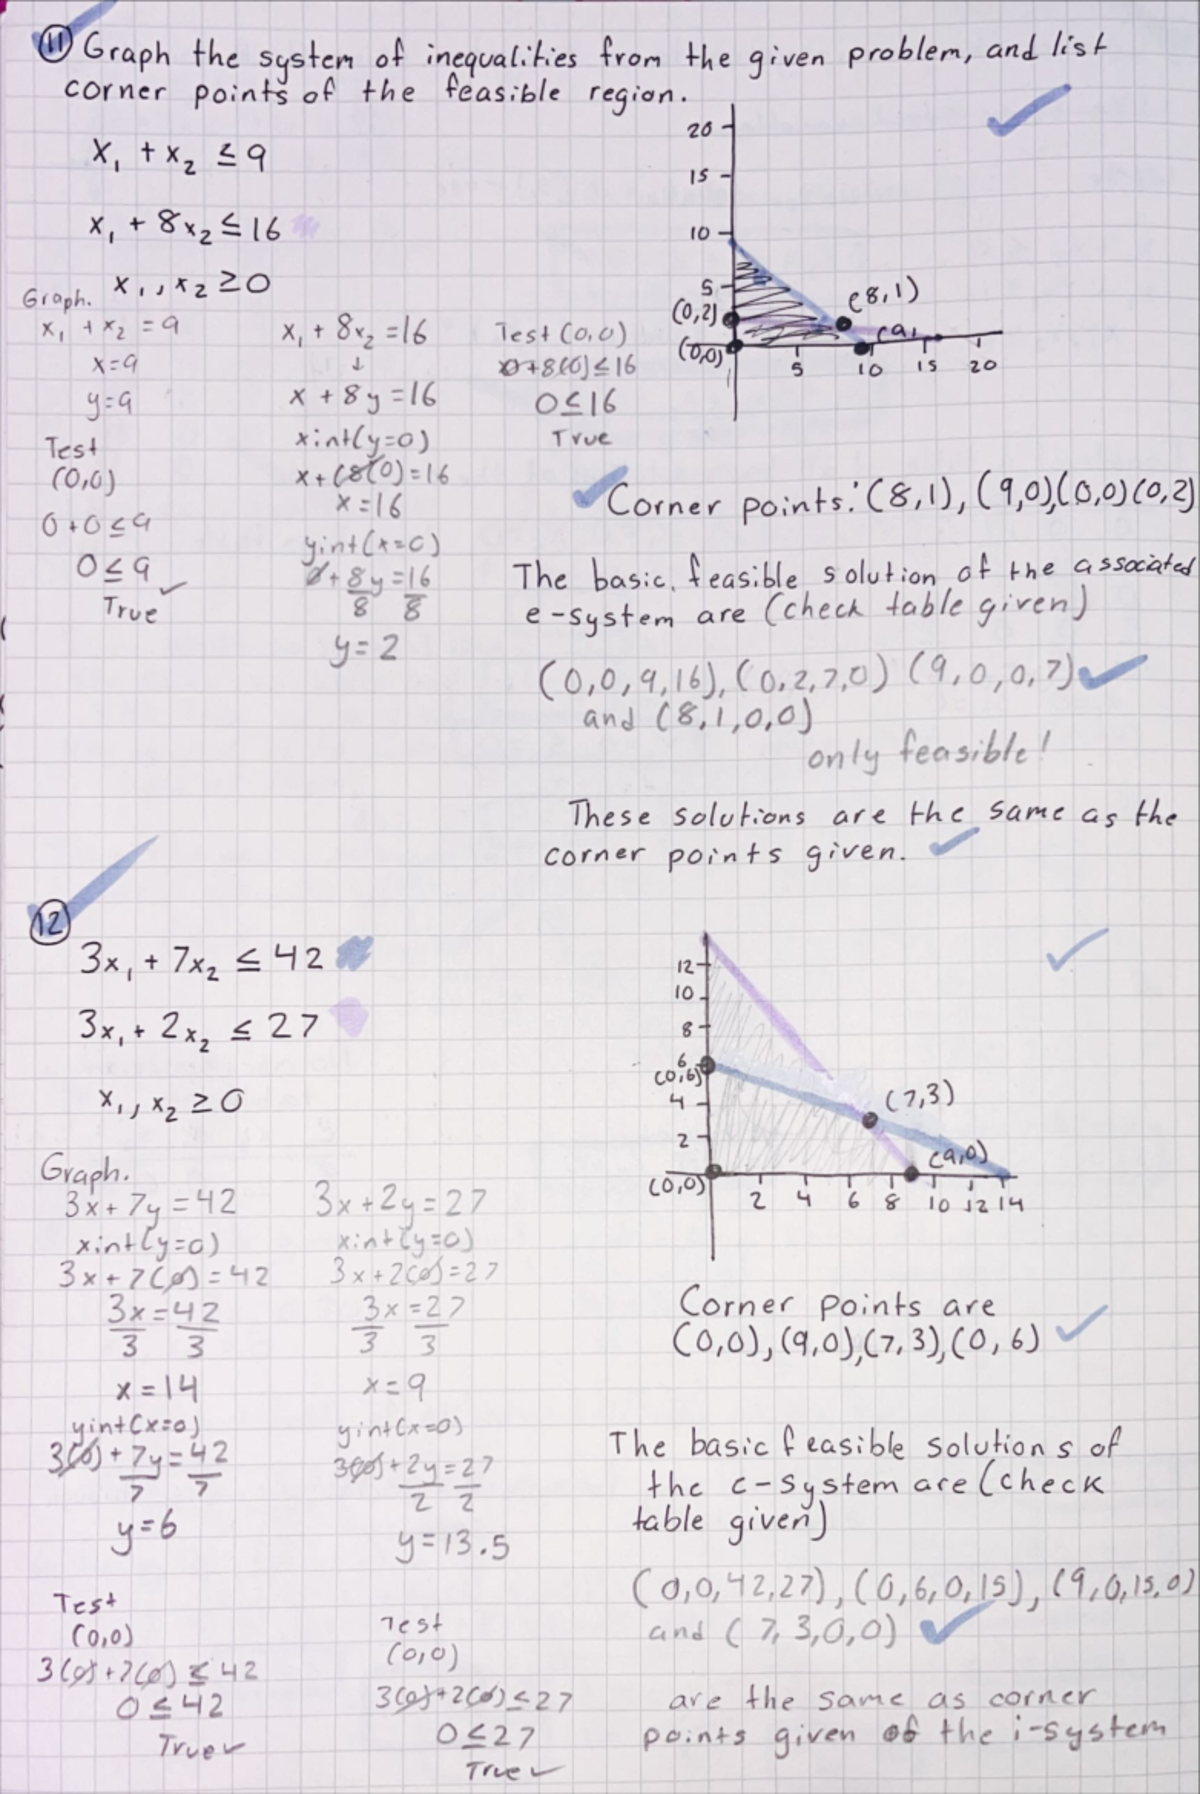 ⑪ Graph the system of inequalities from the given problem, and list
corner points of the feasible region.
x₁ + x₂ ≤ 9
x₁ + 8x₂ ≤ 16
x₁, x₂ ≥ 0
Graph.
x₁ + x₂ = 9
x=9
y=9
Test
(0,0)
0+0≤9
0≤9
True ✓
x₁ + 8x₂ =16
↓
x + 8y =16
xint(y=0)
x+(8(0)=16
x=16
yint(x=0)
0+8y=16
8 8
y=2
Test (0,0)
0+8(0)≤16
0≤16
True
20
15
10
5
(0,2)
(0,0)
(8,1)
(9,
5 10 15 20
Corner points: (8,1), (9,0),(0,0)(0,2)
The basic feasible solution of the associated
e-system are (check table given)
(0,0,9,16), (0,2,7,0) (9,0,0,7)
and (8,1,0,0)
only feasible!
These solutions are the same as the
corner points given.
⑫
3x₁ + 7x₂ ≤ 42
3x₁ + 2x₂ ≤ 27
x₁, x₂ ≥ 0
Graph.
3x+7y=42
xint(y=0)
3x+7(0)=42
3x=42
3 3
x=14
yint(x=0)
3(0)+7y=42
7 7
y=6
Test
(0,0)
3(0)+7(0)≤42
0≤42
True ✓
3x+2y=27
xint(y=0)
3x+2(0)=27
3x=27
3 3
x=9
yint(x=0)
3(0)+2y=27
2 2
y=13.5
Test
(0,0)
3(0)+2(0)≤27
0≤27
True ✓
12
10
8
6
(0,6)
4
2
(0,0)
(7,3)
(9,0)
2 4 6 8 10 12 14
Corner points are
(0,0),(9,0),(7,3),(0,6)
The basic feasible solutions of
the e-system are (check
table given)
(0,0,42,27), (0,6,0,15), (9,0,15,0)
and (7,3,0,0)
are the same as corner
points given of the i-system